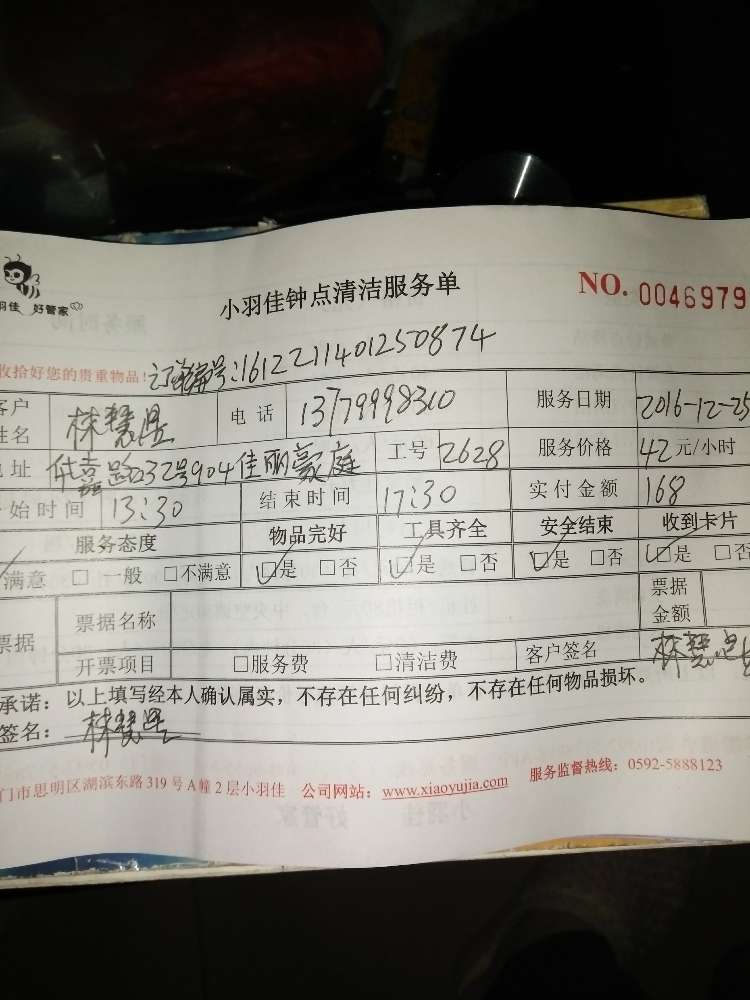 小羽佳钟点清洁服务单
NO. 0046979
羽佳 好管家
收拾好您的贵重物品! 订单编号:1612211401250874
客户姓名 电话 13779998310 服务日期 2016-12-25
址 路232号904佳丽豪庭 工号 2628 服务价格 42元/小时
始时间 13:30 结束时间 17:30 实付金额 168
服务态度 物品完好 工具齐全 安全结束 收到卡片
满意 □ 一般 □不满意 □是 □否 □是 □否 □是 □否 □是 □否
票据 票据名称 票据金额
开票项目 □服务费 □清洁费 客户签名
承诺: 以上填写经本人确认属实,不存在任何纠纷,不存在任何物品损坏。
签名:
门市思明区湖滨东路319号A幢2层小羽佳 公司网站: www.xiaoyujia.com 服务监督热线: 0592-5888123